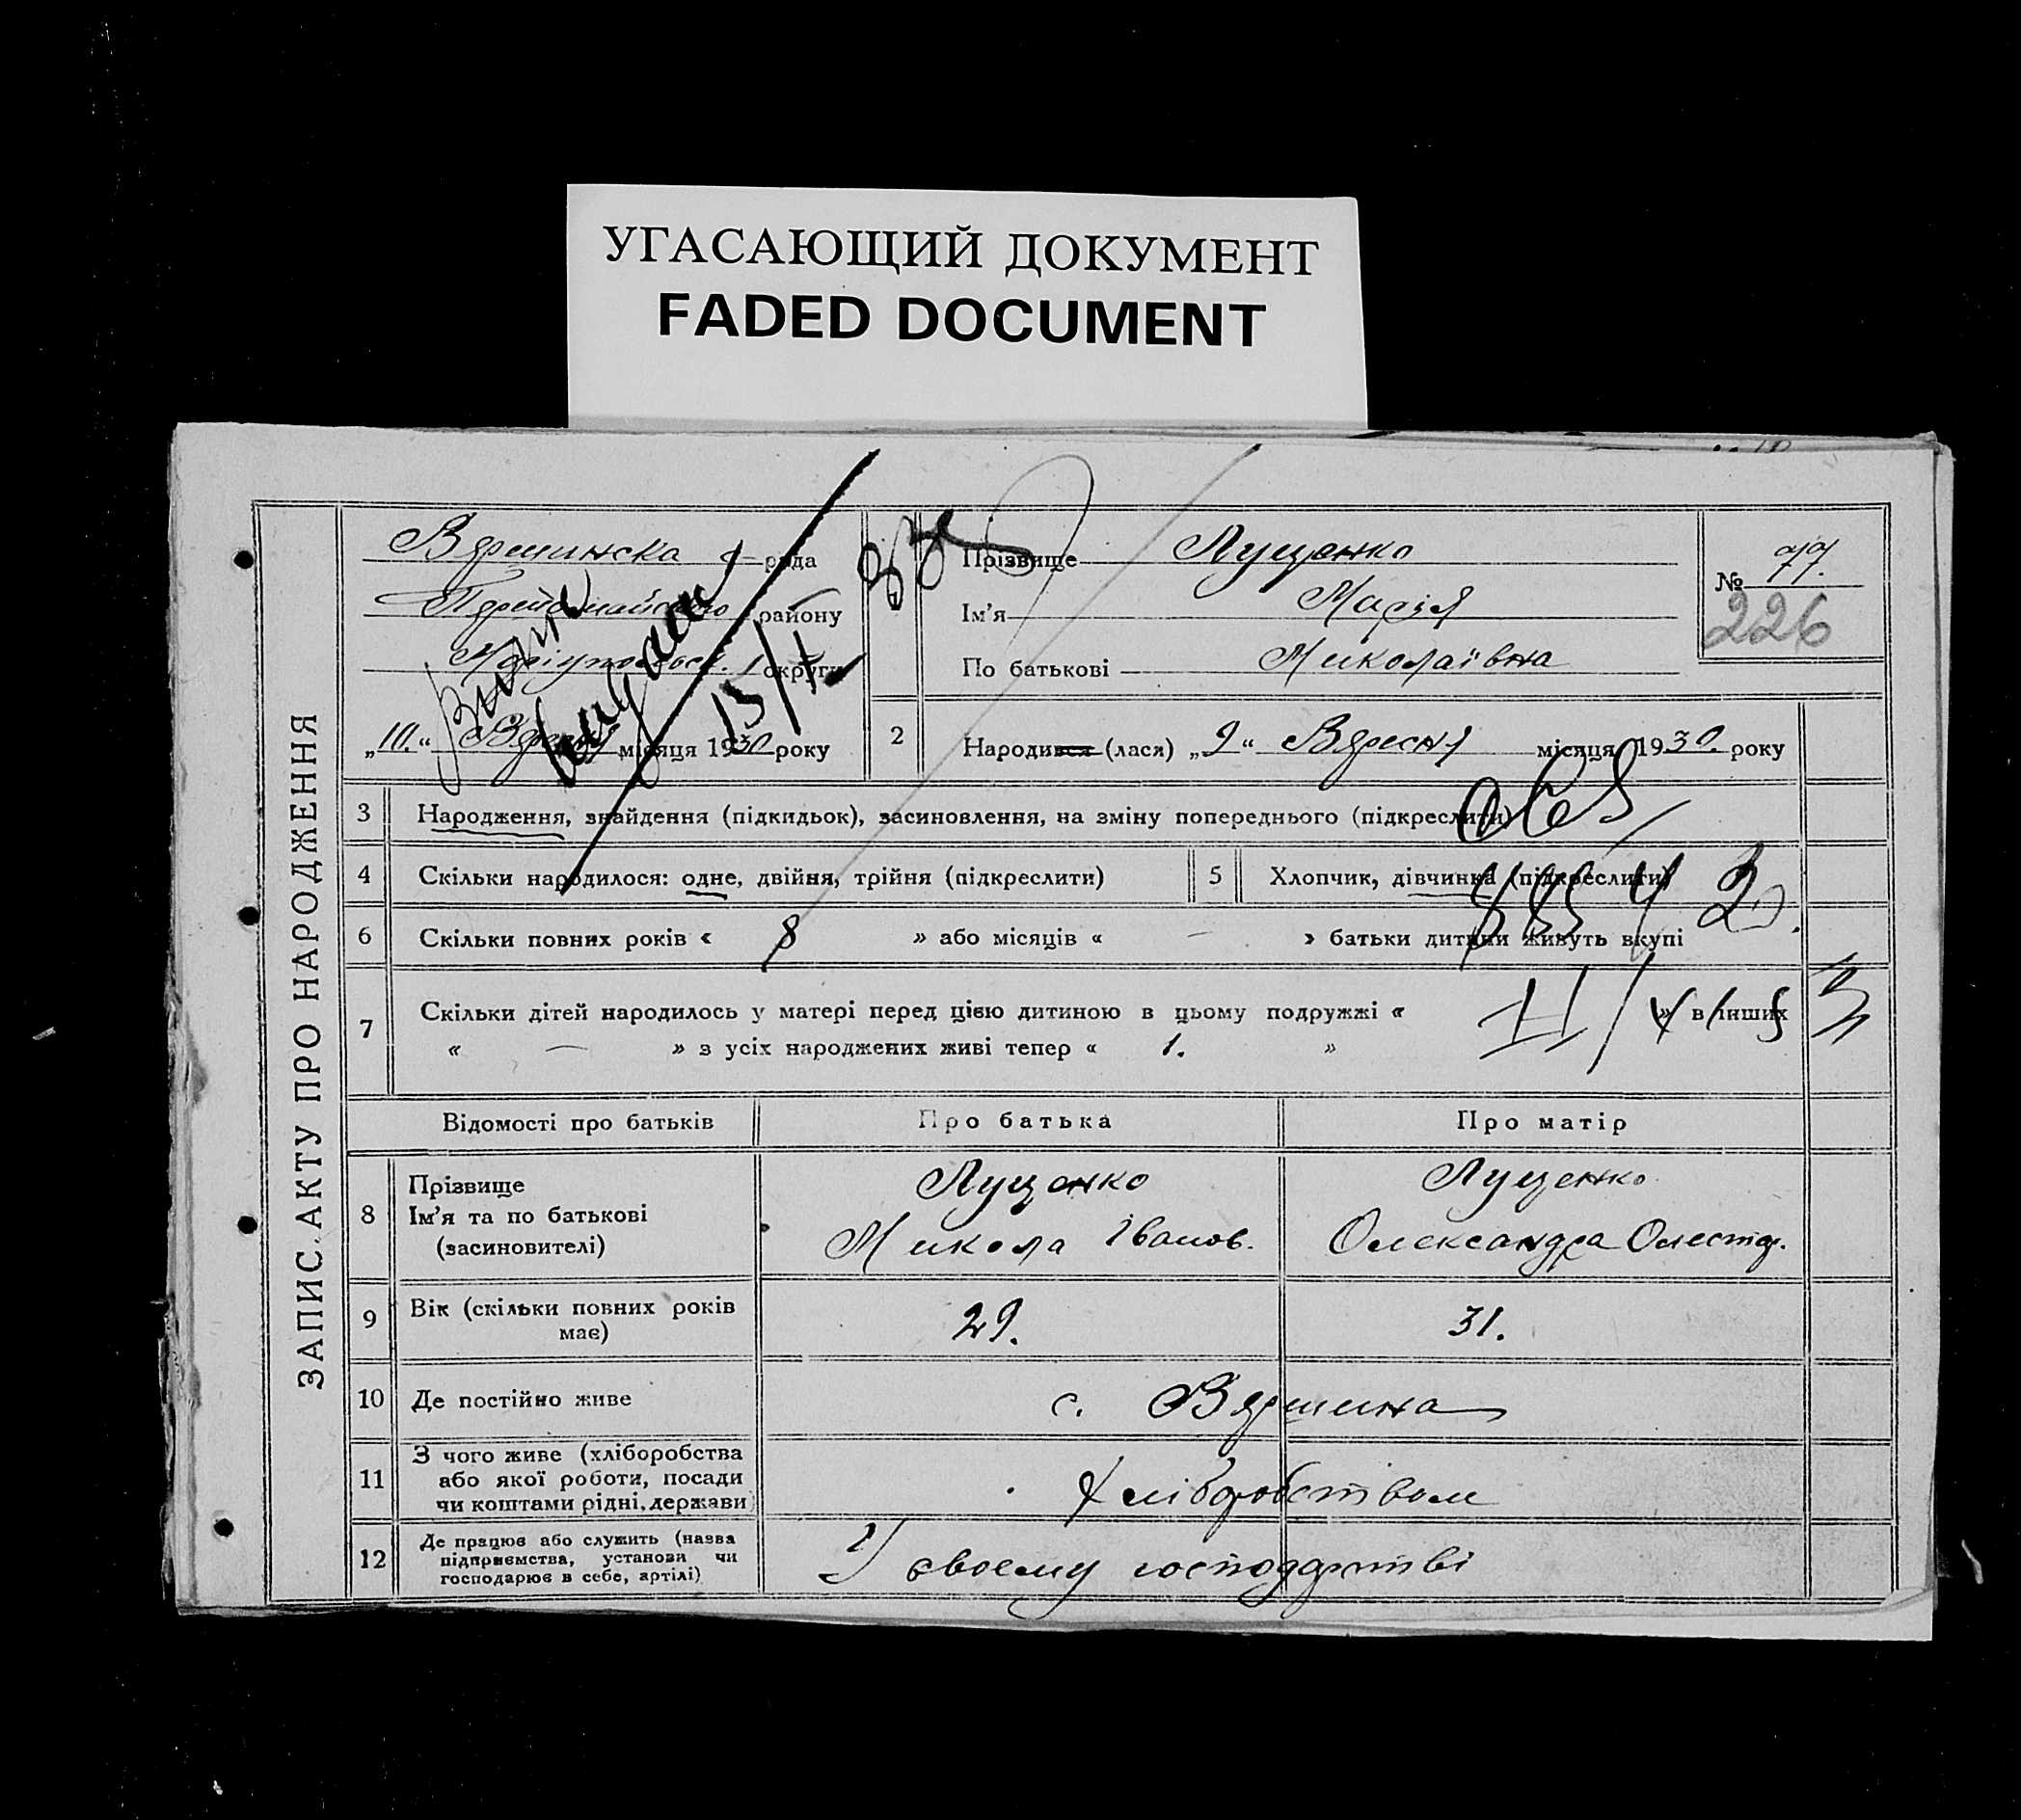 УГАСАЮЩИЙ ДОКУМЕНТ
FADED DOCUMENT
ЗАПИС АКТУ ПРО НАРОДЖЕННЯ
Вершинска с рада
району
округи
„10.“ місяця 1930 року
13/X
Прізвище Лущенко
Ім'я Марія
По батькові Миколаївна
№ 77.
226
2 Народився (лася) „9“ Вересня місяця 1930. року
3 Народження, знайдення (підкидьок), засиновлення, на зміну попереднього (підкреслити)
4 Скільки народилося: одне, двійня, трійня (підкреслити)
5 Хлопчик, дівчинка (підкреслити)
6 Скільки повних років « 8 » або місяців « — » батьки дитини живуть вкупі
7 Скільки дітей народилось у матері перед цією дитиною в цьому подружжі « » в інших
« — » з усіх народжених живі тепер « 1. »
Відомості про батьків Про батька Про матір
8 Прізвище Лущенко Лущенко
Ім'я та по батькові Микола Іванов. Олександра
(засиновителі)
9 Вік (скільки повних років має) 29. 31.
10 Де постійно живе с. Вершина
11 З чого живе (хліборобства
або якої роботи, посади
чи коштами рідні, держави)
Хліборобством
12 Де працює або служить (назва
підприємства, установи чи
господарює в себе, артілі)
У своему господарстві